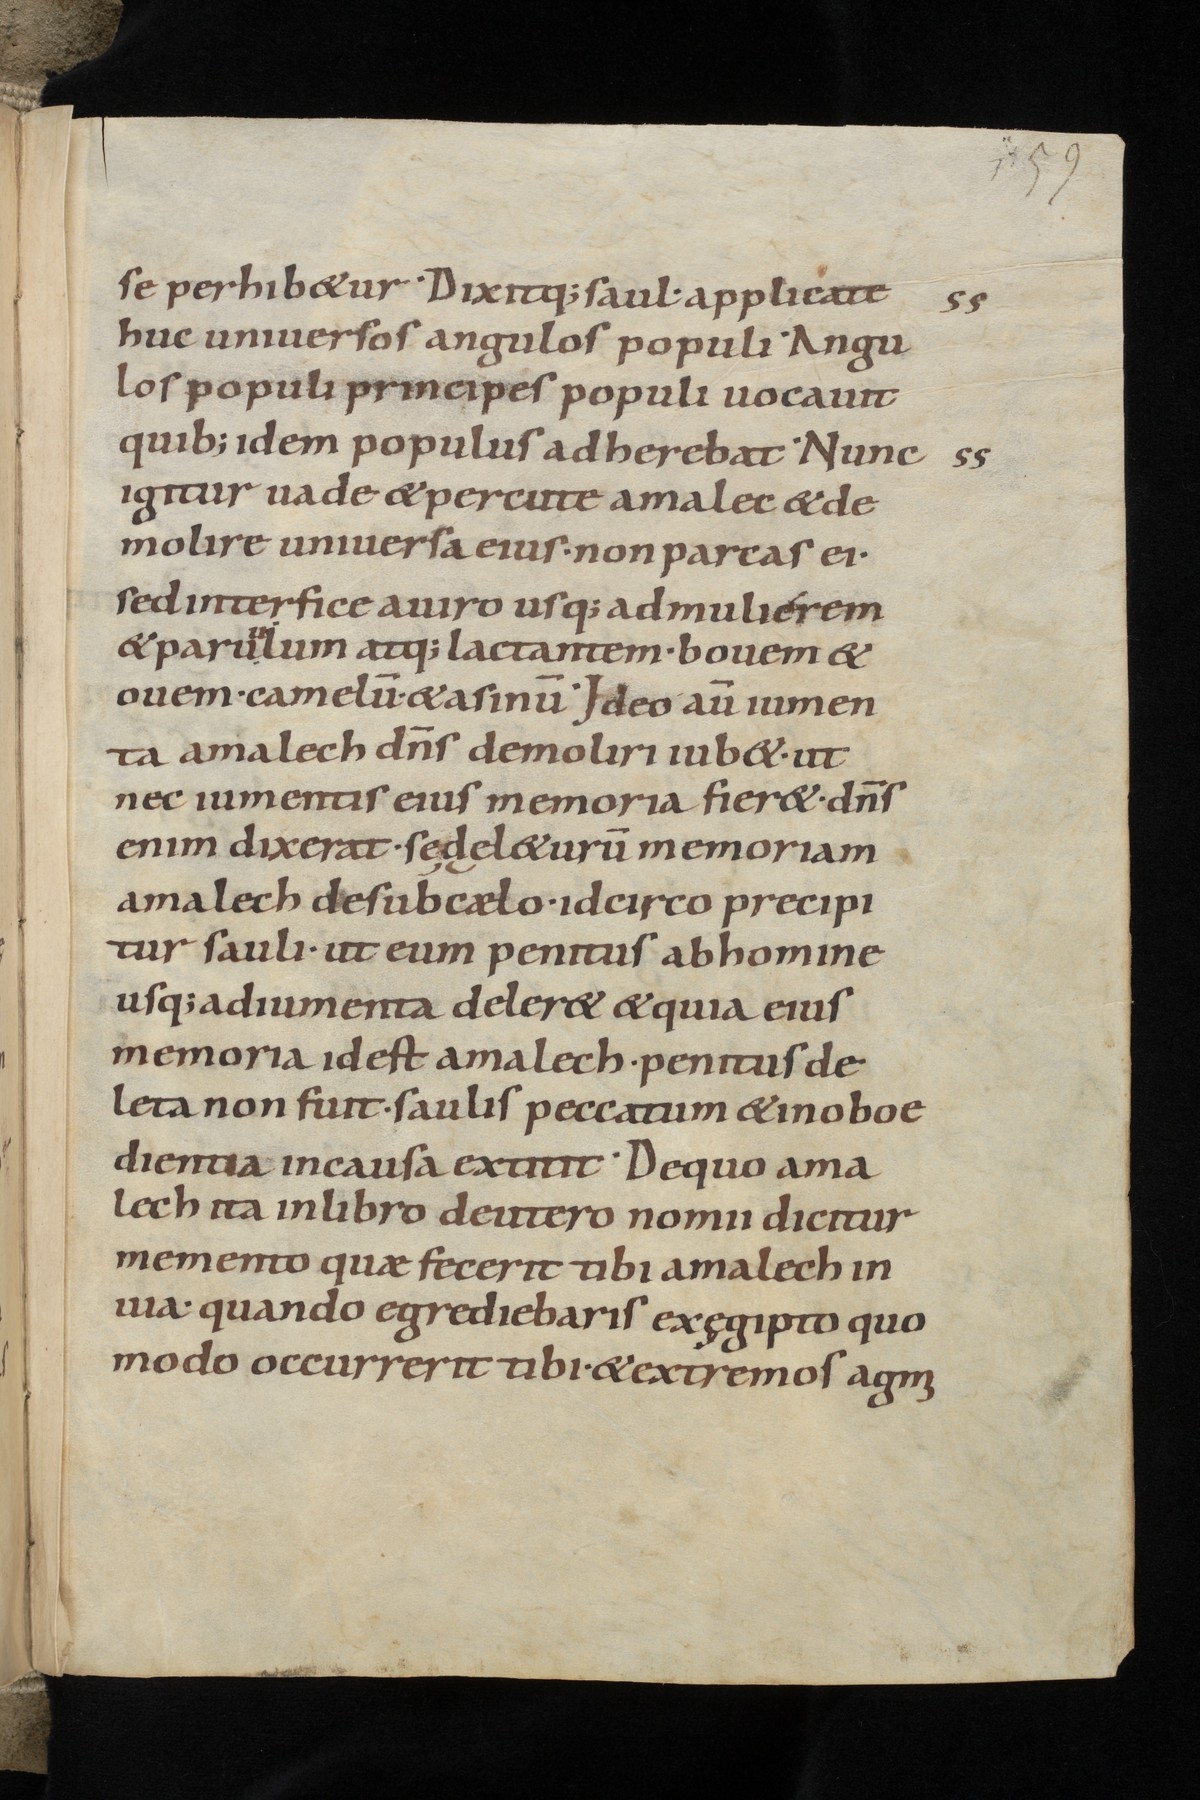 59
se perhib&ur · Dixitq; saul · applicate ss
huc uniuersos angulos populi · Angu
los populi principes populi uocauit
quib; idem populus adherebat · Nunc ss
igitur uade & percute amalec & de
molire uniuersa eius · non parcas ei ·
sed interfice a uiro usq; ad mulierem
& paruulum atq; lactantem · bouem &
ouem · camelū · & asinū · Ideo aū iumen
ta amalech dn̄s demoliri iub& · ut
nec iumentis eius memoria fier& · dn̄s
enim dixerat · sę dęl&urū memoriam
amalech de sub cælo · idcirco precipi
tur sauli · ut eum penitus ab homine
usq; ad iumenta deler& & quia eius
memoria id est amalech · penitus de
leta non fuit · saulis peccatum & inoboe
dientia in causa extitit · De quo ama
lech ita in libro deutero nomii dicitur
memento quæ fecerit tibi amalech in
uia · quando egrediebaris ex ęgipto quo
modo occurrerit tibi · & extremos agm